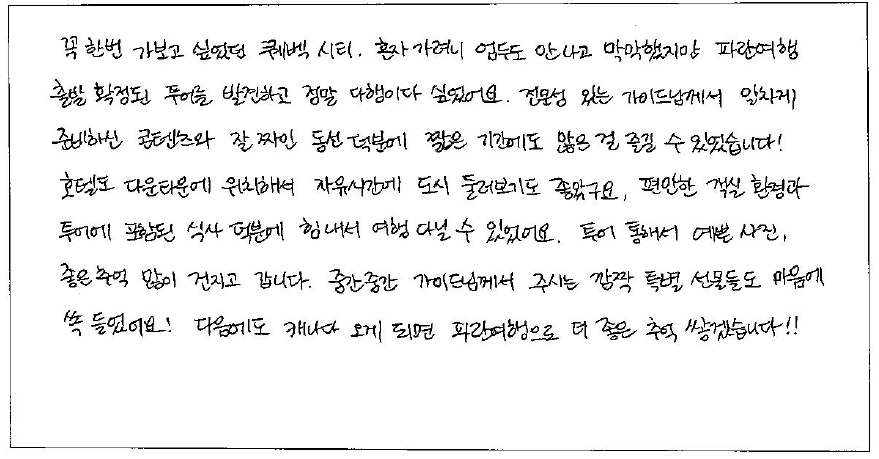 꼭 한번 가보고 싶었던 퀘벡 시티. 혼자 가려니 엄두도 안나고 막막했지만 파란여행
출발 확정된 투어를 발견하고 정말 다행이다 싶었어요. 전문성 있는 가이드님께서 알차게
준비하신 콘텐츠와 잘 짜인 동선 덕분에 짧은 기간에도 많은 걸 즐길 수 있었습니다!
호텔도 다운타운에 위치해서 자유시간에 도시 둘러보기도 좋았구요, 편안한 객실 환경과
투어에 포함된 식사 덕분에 힘내서 여행 다닐 수 있었어요. 투어 통해서 예쁜 사진,
좋은 추억 많이 건지고 갑니다. 중간중간 가이드님께서 주시는 깜짝 특별 선물들도 마음에
쏙 들었어요! 다음에도 캐나다 오게 되면 파란여행으로 더 좋은 추억 쌓겠습니다!!